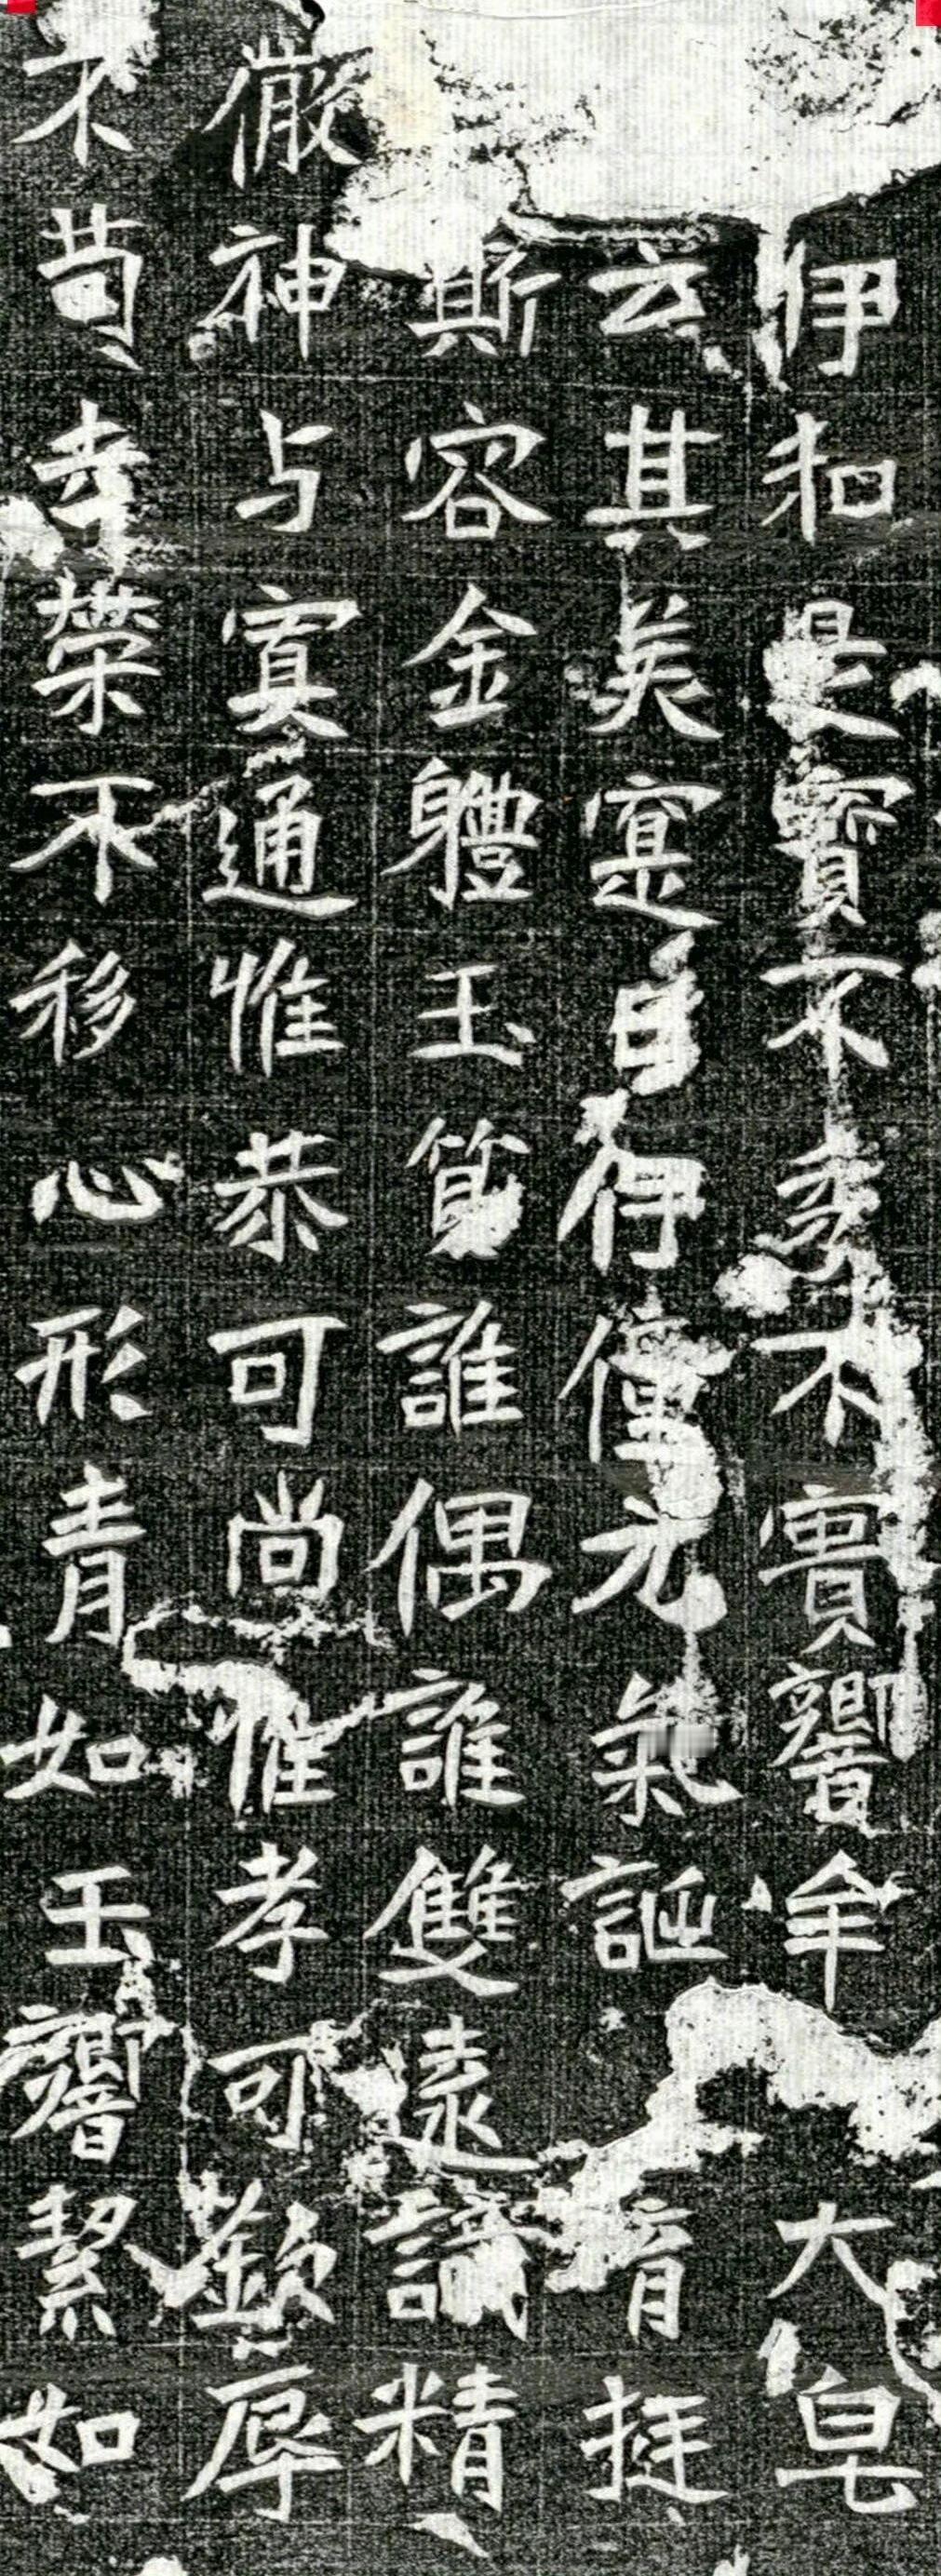 伊和是寶不秀不實響年大皂
玄其美寔曰伊僮元氣誕育挺
斯容金軆玉質誰偶誰雙遠識精
微神与冥通惟恭可尚惟孝可欽辱
不苟幸榮不移心形青如玉響絜如